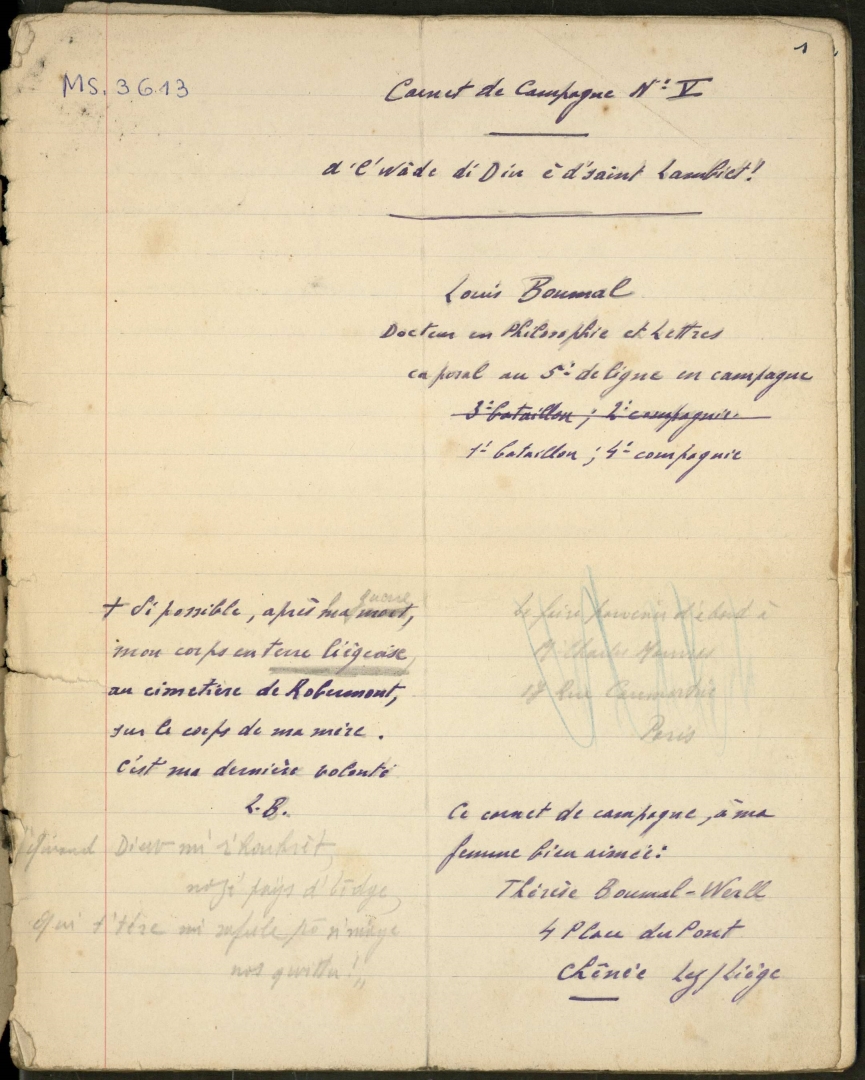 1
MS. 3613
Carnet de Campagne N° V
d'l'wâde di Diu è d'saint Lambiet!
Louis Boumal
Docteur en Philosophie et Lettres
caporal au 5e de ligne en campagne
3e bataillon ; 2e compagnie
1r bataillon ; 4e compagnie
+ Si possible, après ma mort,
guerre
mon corps en terre liégeoise
au cimetière de Robermont,
sur le corps de ma mère.
C'est ma dernière volonté
L.B.
Le faire parvenir d'abord à
Mr Charles
Rue Caumartin
Paris
Diew mi
payis d'Lîdge
Qui t'tére mi
nos
Ce carnet de campagne, à ma
femme bien aimée:
Thérèse Boumal-Werll
4 Place du Pont
Chênée Lez/Liége